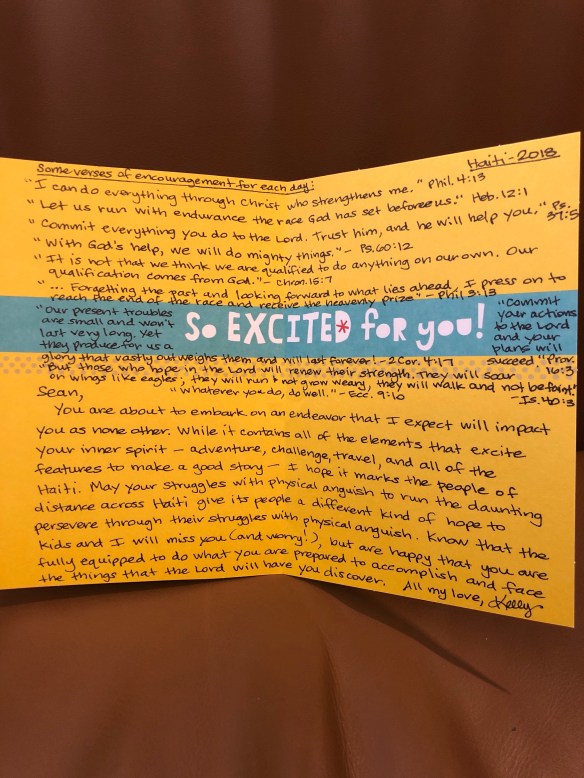 Haiti-2018
Some verses of encouragement for each day:
"I can do everything through Christ who strengthens me." Phil. 4:13
"Let us run with endurance the race God has set before us." Heb. 12:1
"Commit everything you do to the Lord. Trust him, and he will help you." Ps. 37:5
"With God's help, we will do mighty things." - Ps. 60:12
"It is not that we think we are qualified to do anything on our own. Our
qualification comes from God." - Chron. 15:7
"... Forgetting the past and looking forward to what lies ahead, I press on to
reach the end of the race and receive the heavenly prize" - Phil 3:13
"Our present troubles
are small and won't
last very long. Yet
they produce for us a
glory that vastly outweighs them and will last forever! - 2 Cor. 4:17
So EXCITED* for you!
"Commit
your actions
to the Lord
and your
plans will
succeed" Prov.
16:3
"But those who hope in the Lord will renew their strength. They will soar
on wings like eagles; they will run & not grow weary, they will walk and not be faint."
- Is. 40:3
"Whatever you do, do well." - Ecc. 9:10
Sean,
You are about to embark on an endeavor that I expect will impact
you as none other. While it contains all of the elements that excite
your inner spirit - adventure, challenge, travel, and all of the
features to make a good story - I hope it marks the people of
Haiti. May your struggles with physical anguish to run the daunting
distance across Haiti give its people a different kind of hope to
persevere through their struggles with physical anguish. Know that the
kids and I will miss you (and worry!), but are happy that you are
fully equipped to do what you are prepared to accomplish and face
the things that the Lord will have you discover. All my love, Kelly